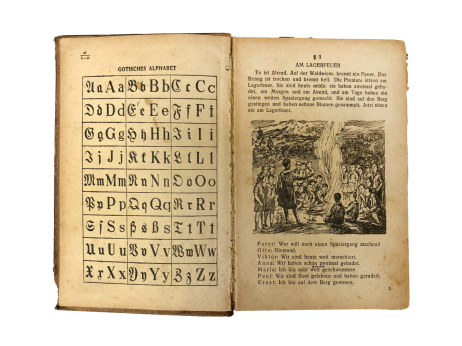 GOTISCHES ALPHABET
Aa Aa Bb Bb Cc Cc
Dd Dd Ee Ee Ff Ff
Gg Gg Hh Hh Ii Ii
Jj Jj Kk Kk Ll Ll
Mm Mm Nn Nn Oo Oo
Pp Pp Qq Qq Rr Rr
Sſ Ss ß ß Tt Tt
Uu Uu Vv Vv Ww Ww
Xx Xx Yy Yy Zz Zz
§ 3
AM LAGERFEUER
Es ist Abend. Auf der Waldwiese brennt ein Feuer. Das
Reisig ist trocken und brennt hell. Die Pioniere sitzen am
Lagerfeuer. Sie sind heute müde: sie haben zweimal gebadet,
am Morgen und am Abend, und am Tage haben sie
einen weiten Spaziergang gemacht. Sie sind auf den Berg
gestiegen und haben seltene Blumen gesammelt. Jetzt sitzen
sie am Lagerfeuer.
Peter: Wer will noch einen Spaziergang machen?
Otto: Niemand.
Viktor: Wir sind heute weit marschiert.
Anna: Wir haben schon zweimal gebadet.
Maria: Ich bin sehr weit geschwommen.
Paul: Wir sind Boot gefahren und haben gerudert.
Ernst: Ich bin auf dem Berg gewesen.